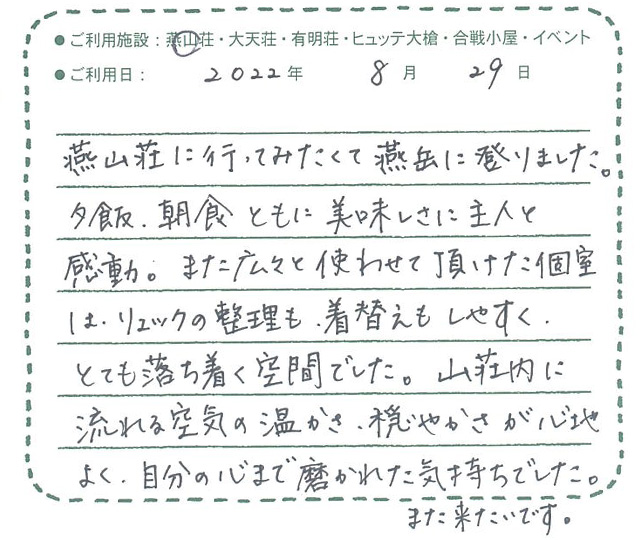 ●ご利用施設:燕山荘・大天荘・有明荘・ヒュッテ大槍・合戦小屋・イベント
●ご利用日: 2022年 8月 29日
燕山荘に行ってみたくて燕岳に登りました。
夕飯、朝食ともに美味しさに主人と
感動。また広々と使わせて頂けた個室
は、リュックの整理も、着替えもしやすく、
とても落ち着く空間でした。山荘内に
流れる空気の温かさ、穏やかさが心地
よく、自分の心まで磨かれた気持ちでした。
また来たいです。